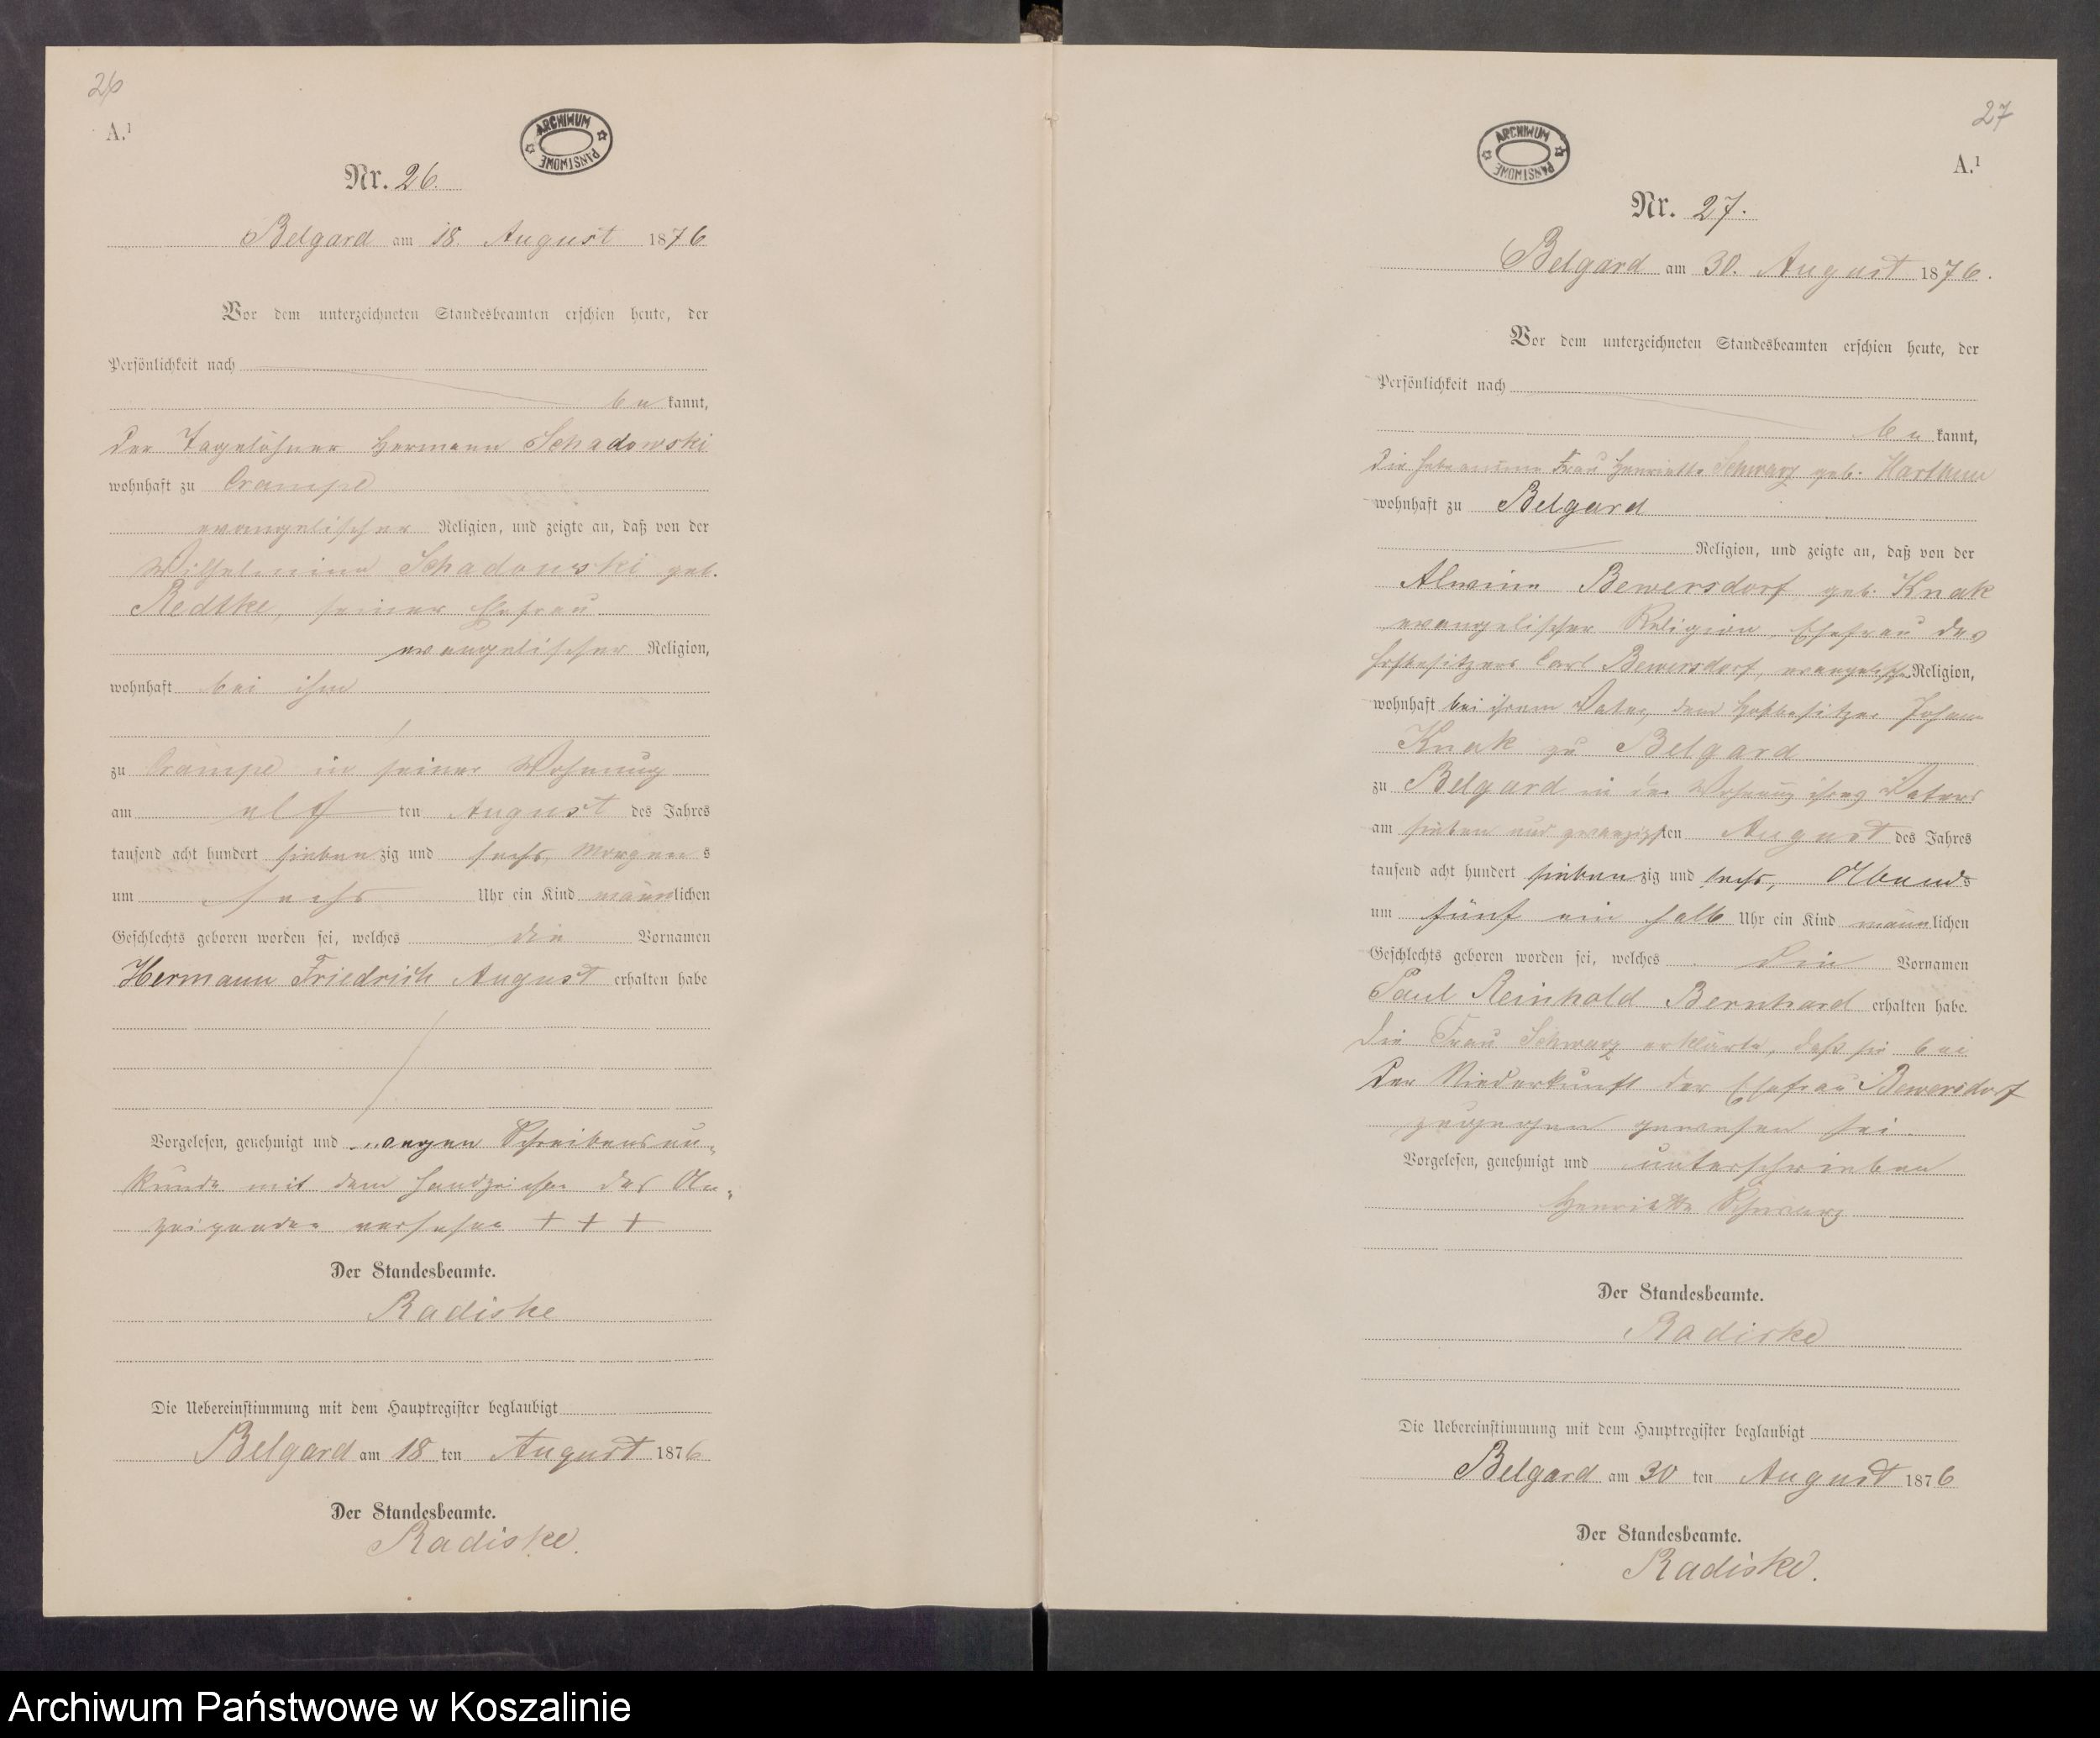 26
A.¹
ARCHIWUM PAŃSTWOWE
Nr. 26.
Belgard am 18. August 1876
Vor dem unterzeichneten Standesbeamten erschien heute, der
Persönlichkeit nach
be kannt,
der Tagelöhner Hermann Schadowski
wohnhaft zu Crampe
evangelischer Religion, und zeigte an, daß von der
Wilhelmine Schadowski geb.
Redtke, seiner Ehefrau
evangelischer Religion,
wohnhaft bei ihm
zu Crampe in seiner Wohnung
am elf ten August des Jahres
tausend acht hundert sieben zig und sechs, Morgen s
um sechs Uhr ein Kind männlichen
Geschlechts geboren worden sei, welches die Vornamen
Hermann Friedrich August erhalten habe
Vorgelesen, genehmigt und wegen Schreibensun-
kunde mit dem Handzeichen des An-
zeigenden versehen + + +
Der Standesbeamte.
Radiske
Die Uebereinstimmung mit dem Hauptregister beglaubigt
Belgard am 18 ten August 1876
Der Standesbeamte.
Radiske.
27
A.¹
ARCHIWUM PAŃSTWOWE
Nr. 27.
Belgard am 30. August 1876.
Vor dem unterzeichneten Standesbeamten erschien heute, der
Persönlichkeit nach
be kannt,
die Hebeamme Frau Henriette Schwarz geb. Harthun
wohnhaft zu Belgard
Religion, und zeigte an, daß von der
Alwine Bewersdorf geb. Knak
evangelischer Religion, Ehefrau des
Hofbesitzers Carl Bewersdorf, evangelischer Religion,
wohnhaft bei ihrem Vater, dem Hofbesitzer Johann
Knak zu Belgard
zu Belgard in der Wohnung ihres Vaters
am sieben und zwanzigsten August des Jahres
tausend acht hundert sieben zig und sechs, Abends
um fünf ein halb Uhr ein Kind männlichen
Geschlechts geboren worden sei, welches die Vornamen
Paul Reinhold Bernhard erhalten habe.
Die Frau Schwarz erklärte, daß sie bei
der Niederkunft der Ehefrau Bewersdorf
zugegen gewesen sei.
Vorgelesen, genehmigt und unterschrieben
Henriette Schwarz
Der Standesbeamte.
Radiske
Die Uebereinstimmung mit dem Hauptregister beglaubigt
Belgard am 30 ten August 1876
Der Standesbeamte.
Radiske.
Archiwum Państwowe w Koszalinie